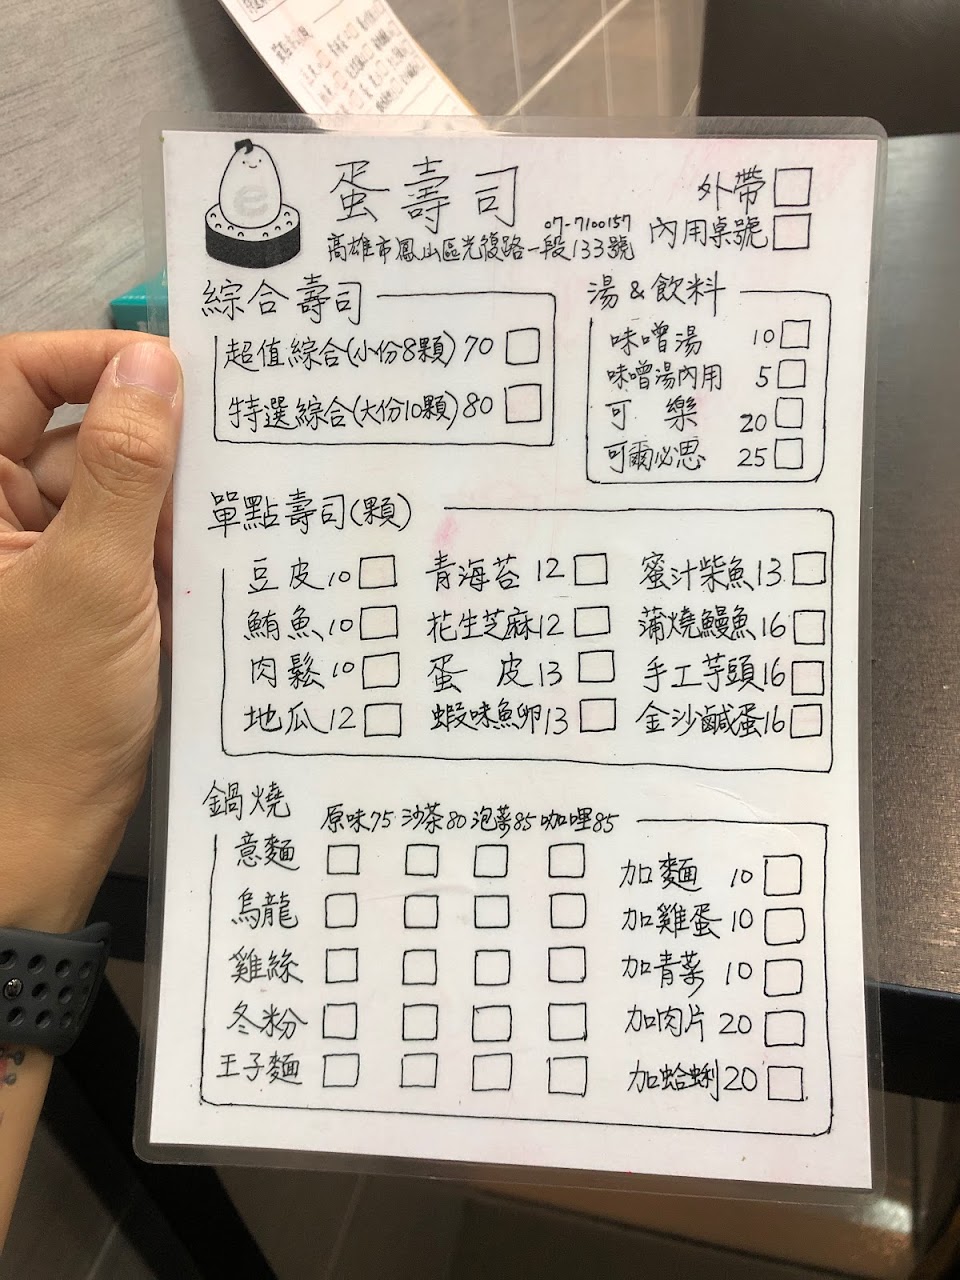 蛋壽司
外帶
07-7100157
高雄市鳳山區光復路一段133號
內用桌號
綜合壽司
超值綜合(小份8顆) 70
特選綜合(大份10顆) 80
湯 & 飲料
味噌湯 10
味噌湯內用 5
可樂 20
可爾必思 25
單點壽司(顆)
豆皮 10 青海苔 12 蜜汁柴魚 13
鮪魚 10 花生芝麻 12 蒲燒鰻魚 16
肉鬆 10 蛋皮 13 手工芋頭 16
地瓜 12 蝦味魚卵 13 金沙鹹蛋 16
鍋燒
原味75 沙茶80 泡菜85 咖哩85
意麵
烏龍
雞絲
冬粉
王子麵
加麵 10
加雞蛋 10
加青菜 10
加肉片 20
加蛤蜊 20